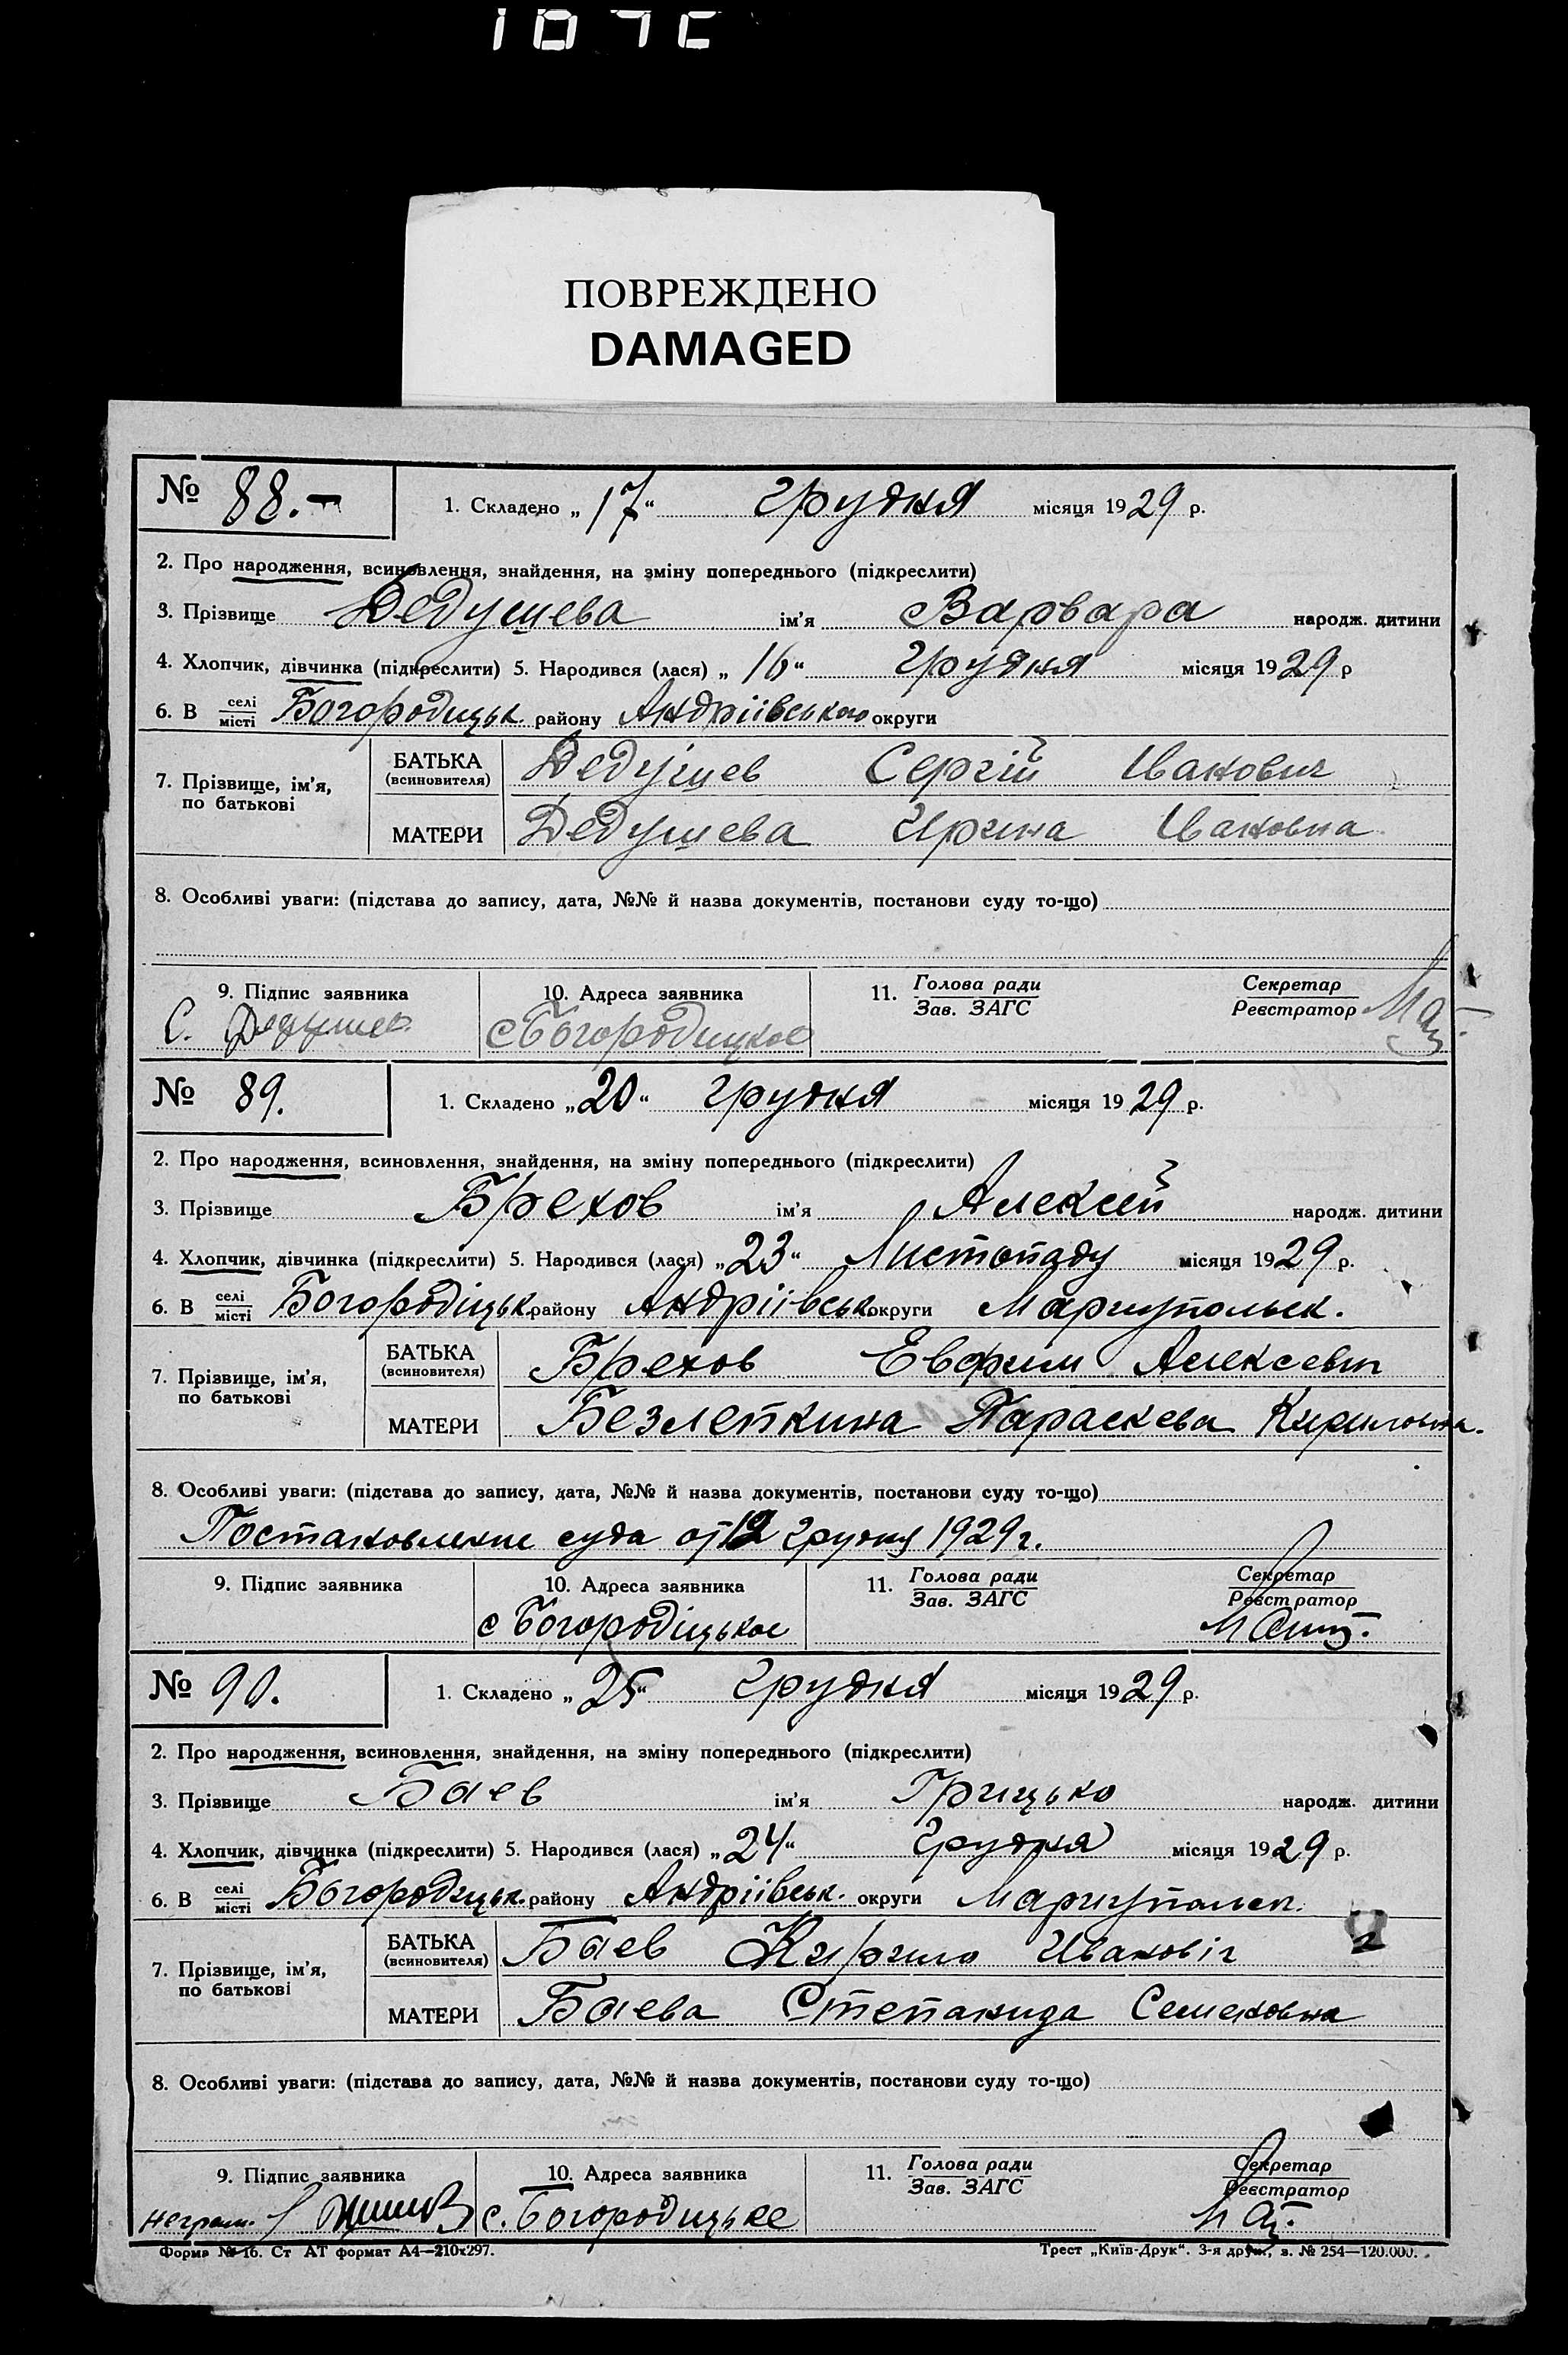 ПОВРЕЖДЕНО
DAMAGED
№ 88.- 1. Складено „17“ грудня місяця 1929 р.
2. Про народження, всиновлення, знайдення, на зміну попереднього (підкреслити)
3. Прізвище Дедушева ім'я Варвара народж. дитини
4. Хлопчик, дівчинка (підкреслити) 5. Народився (лася) „16“ грудня місяця 1929 р
6. В селі/місті Богородицьк. району Андріівського округи
7. Прізвище, ім'я, по батькові БАТЬКА (всиновителя) Дедушев Сергій Иванович
МАТЕРИ Дедушева Ирина Ивановна
8. Особливі уваги: (підстава до запису, дата, №№ й назва документів, постанови суду то-що)
9. Підпис заявника 10. Адреса заявника 11. Голова ради/Зав. ЗАГС Секретар/Реєстратор
С. Дедушев с Богородицкое
№ 89. 1. Складено „20“ грудня місяця 1929 р.
2. Про народження, всиновлення, знайдення, на зміну попереднього (підкреслити)
3. Прізвище Брехов ім'я Алексей народж. дитини
4. Хлопчик, дівчинка (підкреслити) 5. Народився (лася) „23“ Листопаду місяця 1929 р.
6. В селі/місті Богородіцьк. району Андріівськ. округи Маріупольск.
7. Прізвище, ім'я, по батькові БАТЬКА (всиновителя) Брехов Евфим Алексевич
МАТЕРИ Безлепкина Параскева Кириловна.
8. Особливі уваги: (підстава до запису, дата, №№ й назва документів, постанови суду то-що)
Постановление суда от 12 грудня 1929 г.
9. Підпис заявника 10. Адреса заявника 11. Голова ради/Зав. ЗАГС Секретар/Реєстратор
с Богородіцькое
№ 90. 1. Складено „25“ грудня місяця 1929 р.
2. Про народження, всиновлення, знайдення, на зміну попереднього (підкреслити)
3. Прізвище Баев ім'я Грицько народж. дитини
4. Хлопчик, дівчинка (підкреслити) 5. Народився (лася) „24“ Грудня місяця 1929 р.
6. В селі/місті Богородицьк. району Андріівськ. округи Мариупольск.
7. Прізвище, ім'я, по батькові БАТЬКА (всиновителя) Баев Кирило Иванові
МАТЕРИ Баева Степанида Семеновна
8. Особливі уваги: (підстава до запису, дата, №№ й назва документів, постанови суду то-що)
9. Підпис заявника 10. Адреса заявника 11. Голова ради/Зав. ЗАГС Секретар/Реєстратор
неграм. с. Богородицьке
Форма № 16. Ст АТ формат А4—210х297. Трест „Київ-Друк“. 3-я друк., з. № 254—120.000.